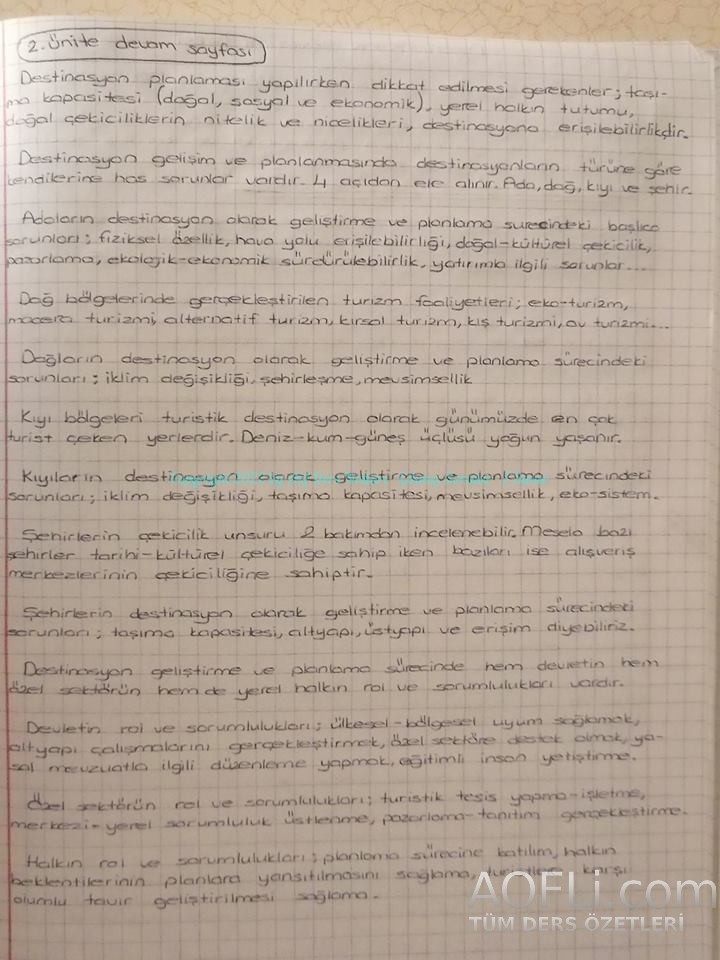 2. Ünite devam sayfası
Destinasyon planlaması yapılırken dikkat edilmesi gerekenler; taşı-
ma kapasitesi (doğal, sosyal ve ekonomik), yerel halkın tutumu,
doğal çekiciliklerin nitelik ve nicelikleri, destinasyona erişilebilirlikdir.
Destinasyon gelişim ve planlanmasında destinasyonların türüne göre
kendilerine has sorunlar vardır. 4 açıdan ele alınır. Ada, dağ, kıyı ve şehir.
Adaların destinasyon olarak geliştirme ve planlama sürecindeki başlıca
sorunları; fiziksel özellik, hava yolu erişilebilirliği, doğal-kültürel çekicilik,
pazarlama, ekolojik-ekonomik sürdürülebilirlik, yatırımla ilgili sorunlar...
Dağ bölgelerinde gerçekleştirilen turizm faaliyetleri; eko-turizm,
macera turizmi, alternatif turizm, kırsal turizm, kış turizmi, av turizmi...
Dağların destinasyon olarak geliştirme ve planlama sürecindeki
sorunları; iklim değişikliği, şehirleşme, mevsimsellik
Kıyı bölgeleri turistik destinasyon olarak günümüzde en çok
turist çeken yerlerdir. Deniz-kum-güneş üçlüsü yoğun yaşanır.
Kıyıların destinasyon olarak geliştirme ve planlama sürecindeki
sorunları; iklim değişikliği, taşıma kapasitesi, mevsimsellik, eko-sistem.
Şehirlerin çekicilik unsuru 2 bakımdan incelenebilir. Mesela bazı
şehirler tarihi-kültürel çekiciliğe sahip iken bazıları ise alışveriş
merkezlerinin çekiciliğine sahiptir.
Şehirlerin destinasyon olarak geliştirme ve planlama sürecindeki
sorunları; taşıma kapasitesi, altyapı, üstyapı ve erişim diyebiliriz.
Destinasyon geliştirme ve planlama sürecinde hem devletin hem
özel sektörün hem de yerel halkın rol ve sorumlulukları vardır.
Devletin rol ve sorumlulukları; ülkesel-bölgesel uyum sağlamak,
altyapı çalışmalarını gerçekleştirmek, özel sektöre destek olmak, ya-
sal mevzuatla ilgili düzenleme yapmak, eğitimli insan yetiştirme.
Özel sektörün rol ve sorumlulukları; turistik tesis yapma-işletme,
merkezi-yerel sorumluluk üstlenme, pazarlama-tanıtım gerçekleştirme.
Halkın rol ve sorumlulukları; planlama sürecine katılım, halkın
beklentilerinin planlara yansıtılmasını sağlama, turistlere karşı
olumlu tavır geliştirilmesi sağlama.
AOFLi.com
TÜM DERS ÖZETLERİ